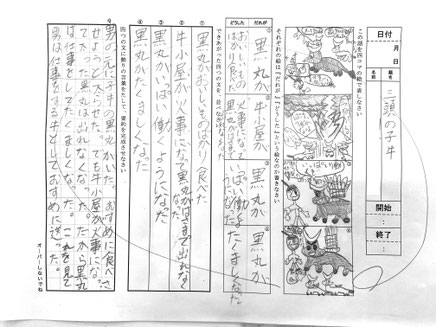 日付
月
日
題名
名前
三頭の子牛
開始
終了
この話を四コマの絵で表しなさい
それぞれの絵は『だれが』『どうした』という絵なのか書きなさい
だれが
黒丸が
牛小屋が
黒丸が
黒丸が
どうした
おいしいもの
ばかり食べた
火事になって
いっぱい働く
ようになった
たくましくなった
できあがった四つの文を、並べなさい
① 黒丸がおいしいものばかり食べた
② 牛小屋が火事になって黒丸が出れなく
なった
③ 黒丸がいっぱい働くようになった
④ 黒丸がたくましくなった
四つの文に飾りの言葉をたして、要約を完成させなさい
男の元に子牛の黒丸がいた。おすめに食べさ
せようと太らせた。でも牛小屋が火事にな
ってきた黒丸は出れなくなった。だから黒丸
は仕事をしてたくましくなった。これを見て
男は仕事をする牛としておすめに送った。
オーバーしないでね